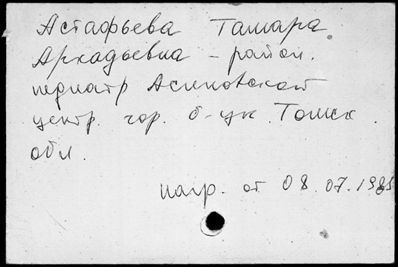 Астафьева Тамара
Аркадьевна - район.
педиатр Асиновской
центр. гор. б-цы. Томск.
обл.
нагр. от 08.07.1985